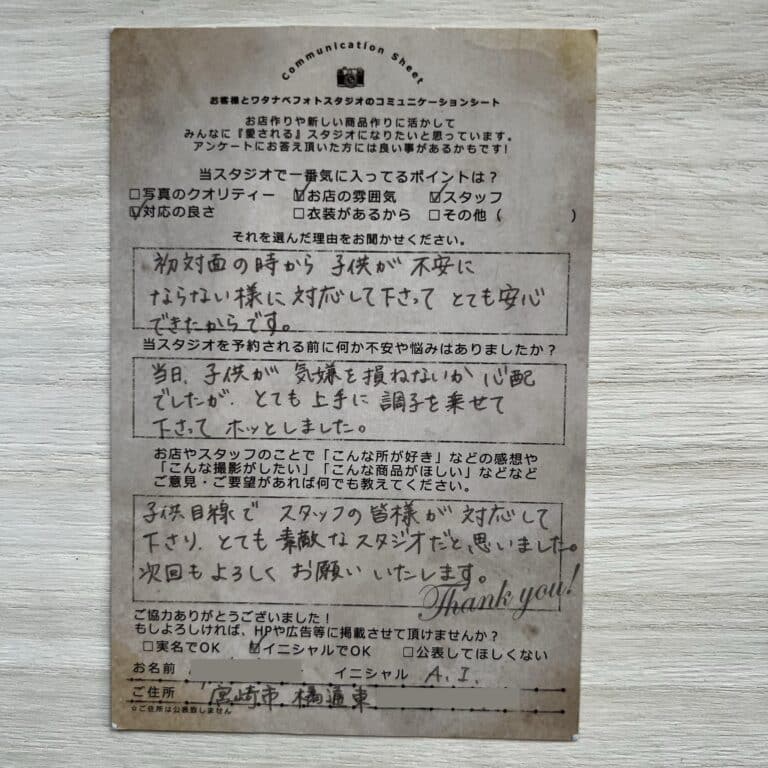 Communication Sheet
お客様とワタナベフォトスタジオのコミュニケーションシート
お店作りや新しい商品作りに活かして
みんなに『愛される』スタジオになりたいと思っています。
アンケートにお答え頂いた方には良い事があるかもです!
当スタジオで一番気に入ってるポイントは?
□写真のクオリティー ☑お店の雰囲気 ☑スタッフ
☑対応の良さ □衣装があるから □その他( )
それを選んだ理由をお聞かせください。
初対面の時から 子供が 不安に
ならない様に 対応して下さって とても安心
できたからです。
当スタジオを予約される前に何か不安や悩みはありましたか?
当日、子供が 気嫌を損ねないか 心配
でしたが、とても上手に 調子を乗せて
下さって ホッとしました。
お店やスタッフのことで「こんな所が好き」などの感想や
「こんな撮影がしたい」「こんな商品がほしい」などなど
ご意見・ご要望があれば何でも教えてください。
子供目線で スタッフの皆様が 対応して
下さり、とても 素敵なスタジオだと思いました。
次回もよろしく お願い いたします。
Thank you!
ご協力ありがとうございました!
もしよろしければ、HPや広告等に掲載させて頂けませんか?
□実名でOK ☑イニシャルでOK □公表してほしくない
お名前 イニシャル A.I.
ご住所 宮崎市 橘通東
☆ご住所は公表致しません